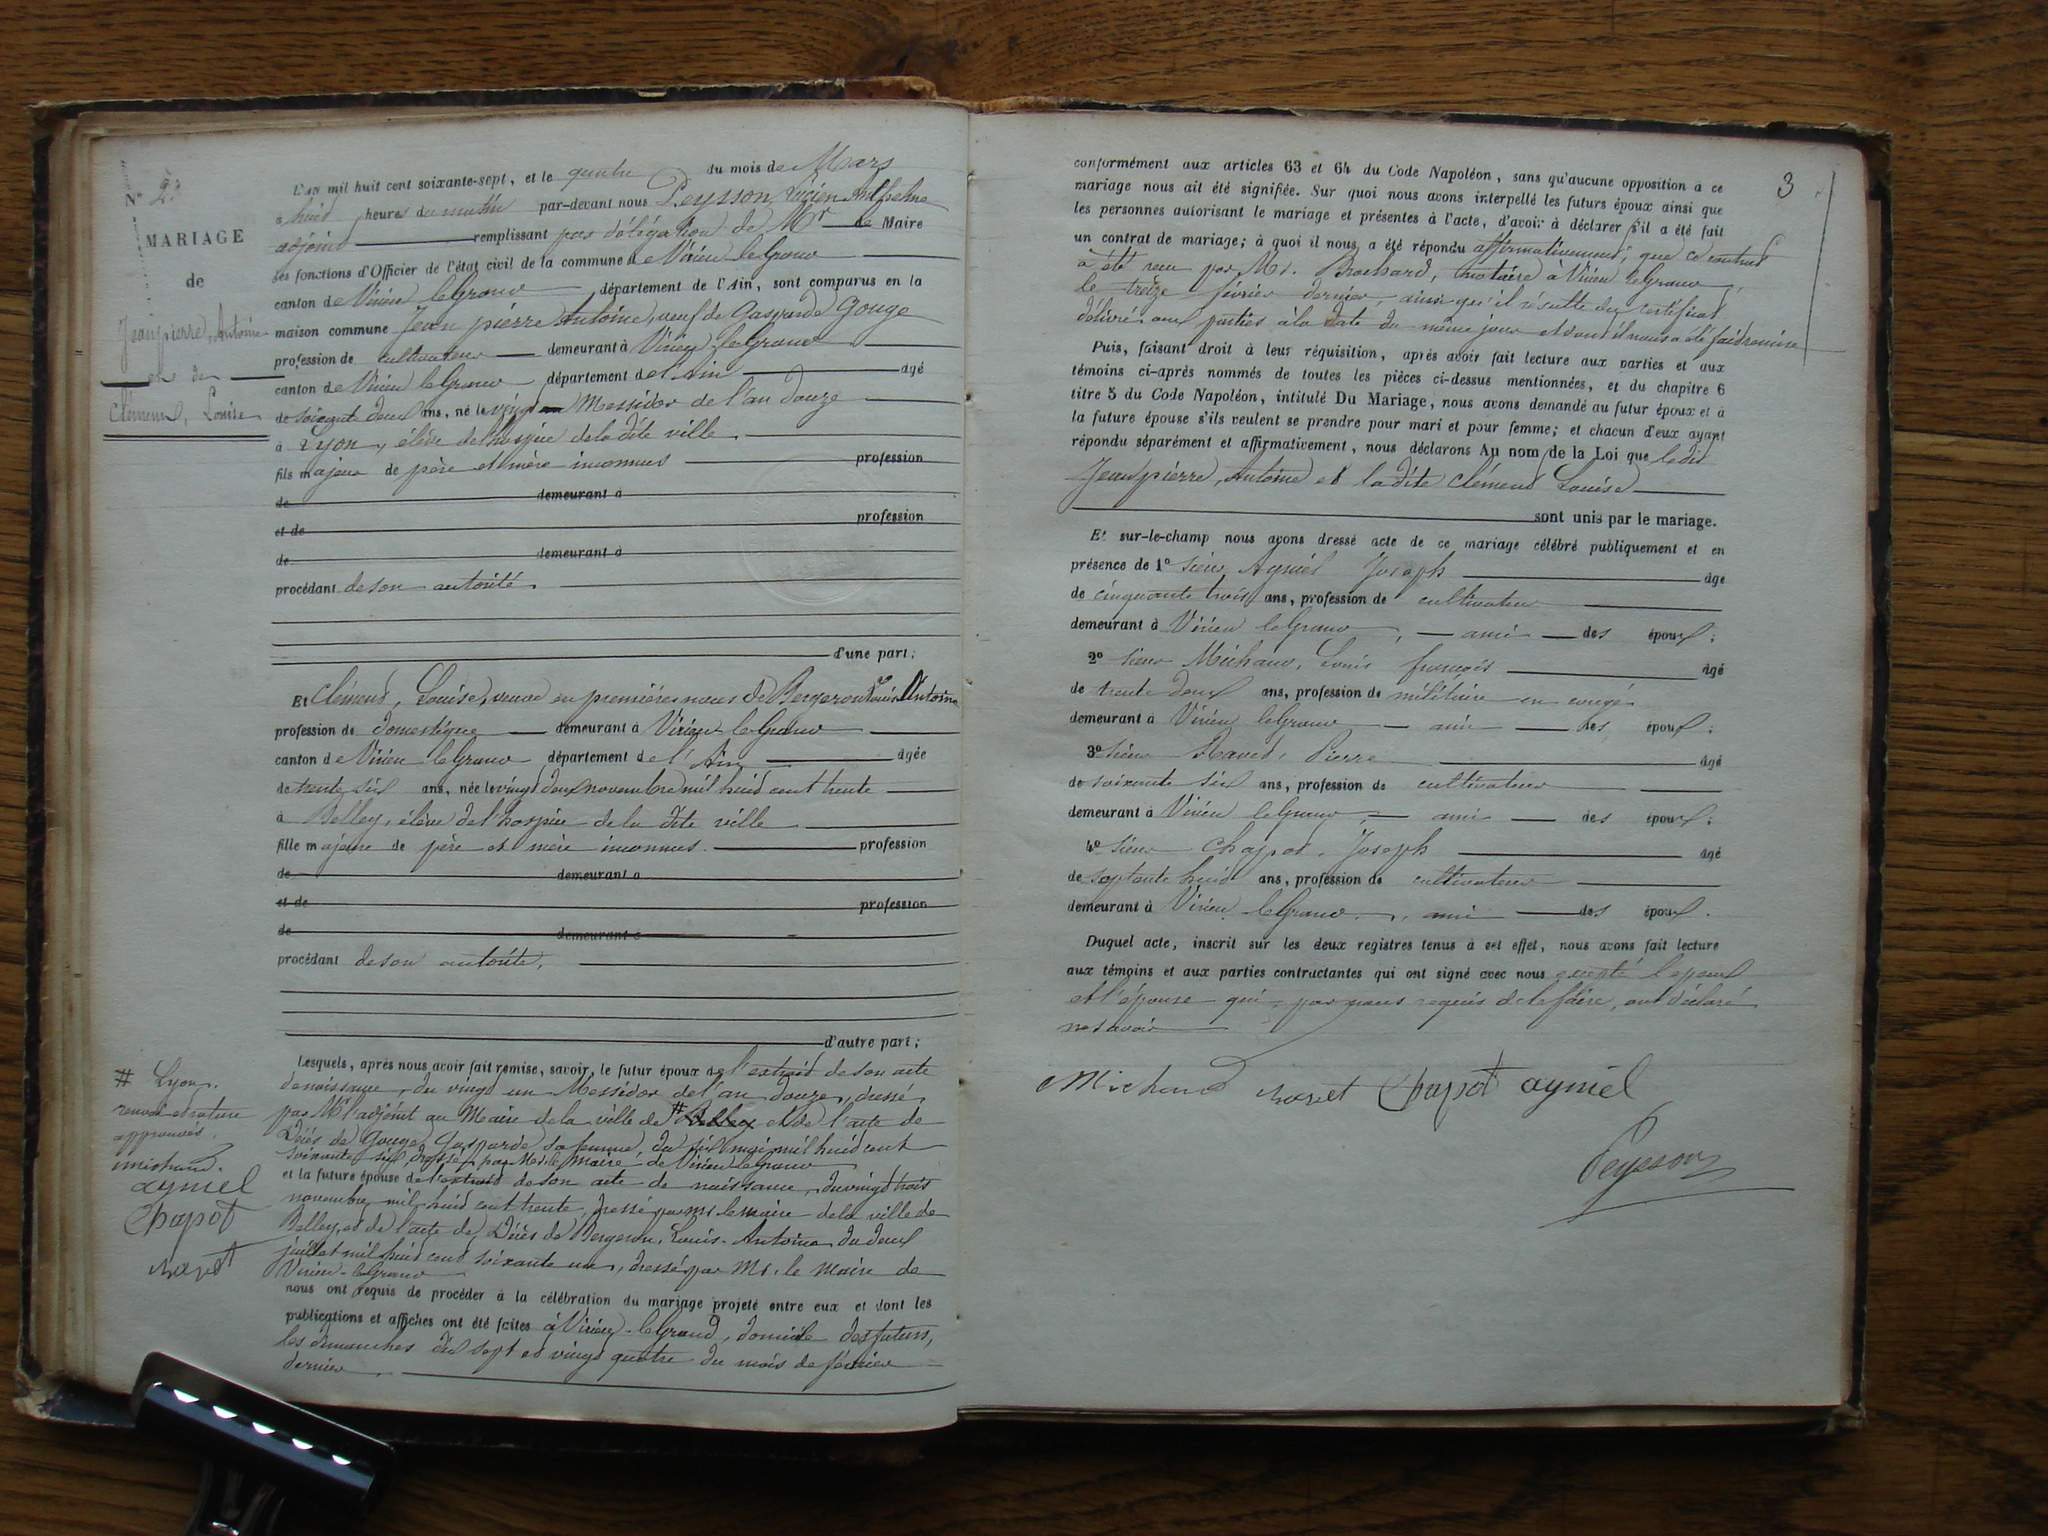 N° 2
MARIAGE
de
Jeanpierre, Antoine
et de
Clémend, Louise
L'an mil huit cent soixante-sept, et le quatre du mois de Mars
à huid heures du matin par-devant nous Peysson, Lucien Anthelme
adjoind remplissant par délégation de Mr le Maire
les fonctions d'Officier de l'état civil de la commune de Virieu leGrand
canton de Virieu leGrand département de l'Ain, sont comparus en la
maison commune Jean pierre Antoine, veuf de Gasparde Gouge
profession de cultivateur demeurant à Virieu leGrand
canton de Virieu leGrand département de l'Ain âgé
de soixante deux ans, né le vingt Messidor de l'an douze
à Lyon, élève del'hospice dela dite ville
fils majeur de père et mère inconnus profession
de demeurant à
et de profession
de demeurant à
procédant deson autorité.
d'une part;
Et Clémend, Louise, veuve en premières noces de Bergeron Louis Antoine
profession de domestique demeurant à Virieu leGrand
canton de Virieu leGrand département de l'Ain âgée
de trente six ans, née le vingd deux novembre mil huid cent trente
à Belley, élève del'hospice dela dite ville
fille majeure de père et mère inconnus. profession
de demeurant à
et de profession
de demeurant à
procédant deson autorité.
d'autre part;
Lesquels, après nous avoir fait remise, savoir, le futur époux de l'extraid deson acte
denaissance, du vingd un Messidor del'an douze, dressé
par Mr l'adjoint au Maire dela ville de # Belley et de l'acte de
Décès de Gouge, Gasparde sa femme, du six mai mil huid cent
soixante six, dressé par Mr le Maire de Virieu leGrand
et la future épouse de l'extraid deson acte de naissance, du vingd trois
novembre mil huid cent trente, dressé par Mr le maire dela ville de
Belley, et de l'acte de Décès de Bergeron, Louis-Antoine, du deux
juillet mil huid cend soixante un, dressé par Mr. le Maire de
Virieu-leGrand
nous ont requis de procéder à la célébration du mariage projeté entre eux et dont les
publications et affiches ont été faites à Virieu-leGrand, domicile desfuturs,
les dimanches dix sept et vingt quatre du mois de février
dernier.
# Lyon.
renvoi et rature
approuvés.
michaud.
aymel
Chapot
ravet
3
conformément aux articles 63 et 64 du Code Napoléon, sans qu'aucune opposition à ce
mariage nous ait été signifiée. Sur quoi nous avons interpellé les futurs époux ainsi que
les personnes autorisant le mariage et présentes à l'acte, d'avoir à déclarer s'il a été fait
un contrat de mariage; à quoi il nous a été répondu affirmativement, que ce contrat
a été recu par Mr. Brochard, notaire à Virieu leGrand,
le treize février dernier, ainsi qu'il résulte du certificat
délivré aux parties àla date du même jour et dont il nous a été faid remise
Puis, faisant droit à leur réquisition, après avoir fait lecture aux parties et aux
témoins ci-après nommés de toutes les pièces ci-dessus mentionnées, et du chapitre 6
titre 5 du Code Napoléon, intitulé Du Mariage, nous avons demandé au futur époux et à
la future épouse s'ils veulent se prendre pour mari et pour femme; et chacun d'eux ayant
répondu séparément et affirmativement, nous déclarons Au nom de la Loi que ledit
Jeanpierre, Antoine et la dite Clémend Louise
sont unis par le mariage.
Et sur-le-champ nous avons dressé acte de ce mariage célébré publiquement et en
présence de 1° sieur Aymel Joseph âgé
de cinquante trois ans, profession de cultivateur
demeurant à Virieu leGrand, ami des époux;
2° sieur Michaud, Louis françois âgé
de trente deux ans, profession de militaire en congé
demeurant à Virieu leGrand ami des époux;
3° sieur Raved, Pierre âgé
de soixante six ans, profession de cultivateur
demeurant à Virieu leGrand, ami des époux;
4° sieur Chapot, Joseph âgé
de septante huid ans, profession de cultivateur
demeurant à Virieu leGrand, ami des époux.
Duquel acte, inscrit sur les deux registres tenus à cet effet, nous avons fait lecture
aux témoins et aux parties contractantes qui ont signé avec nous excepté l'époux
et l'épouse qui par nous requis de le faire, ont déclaré
ne savoir
Michaud ravet Chapot aymel
Peysson